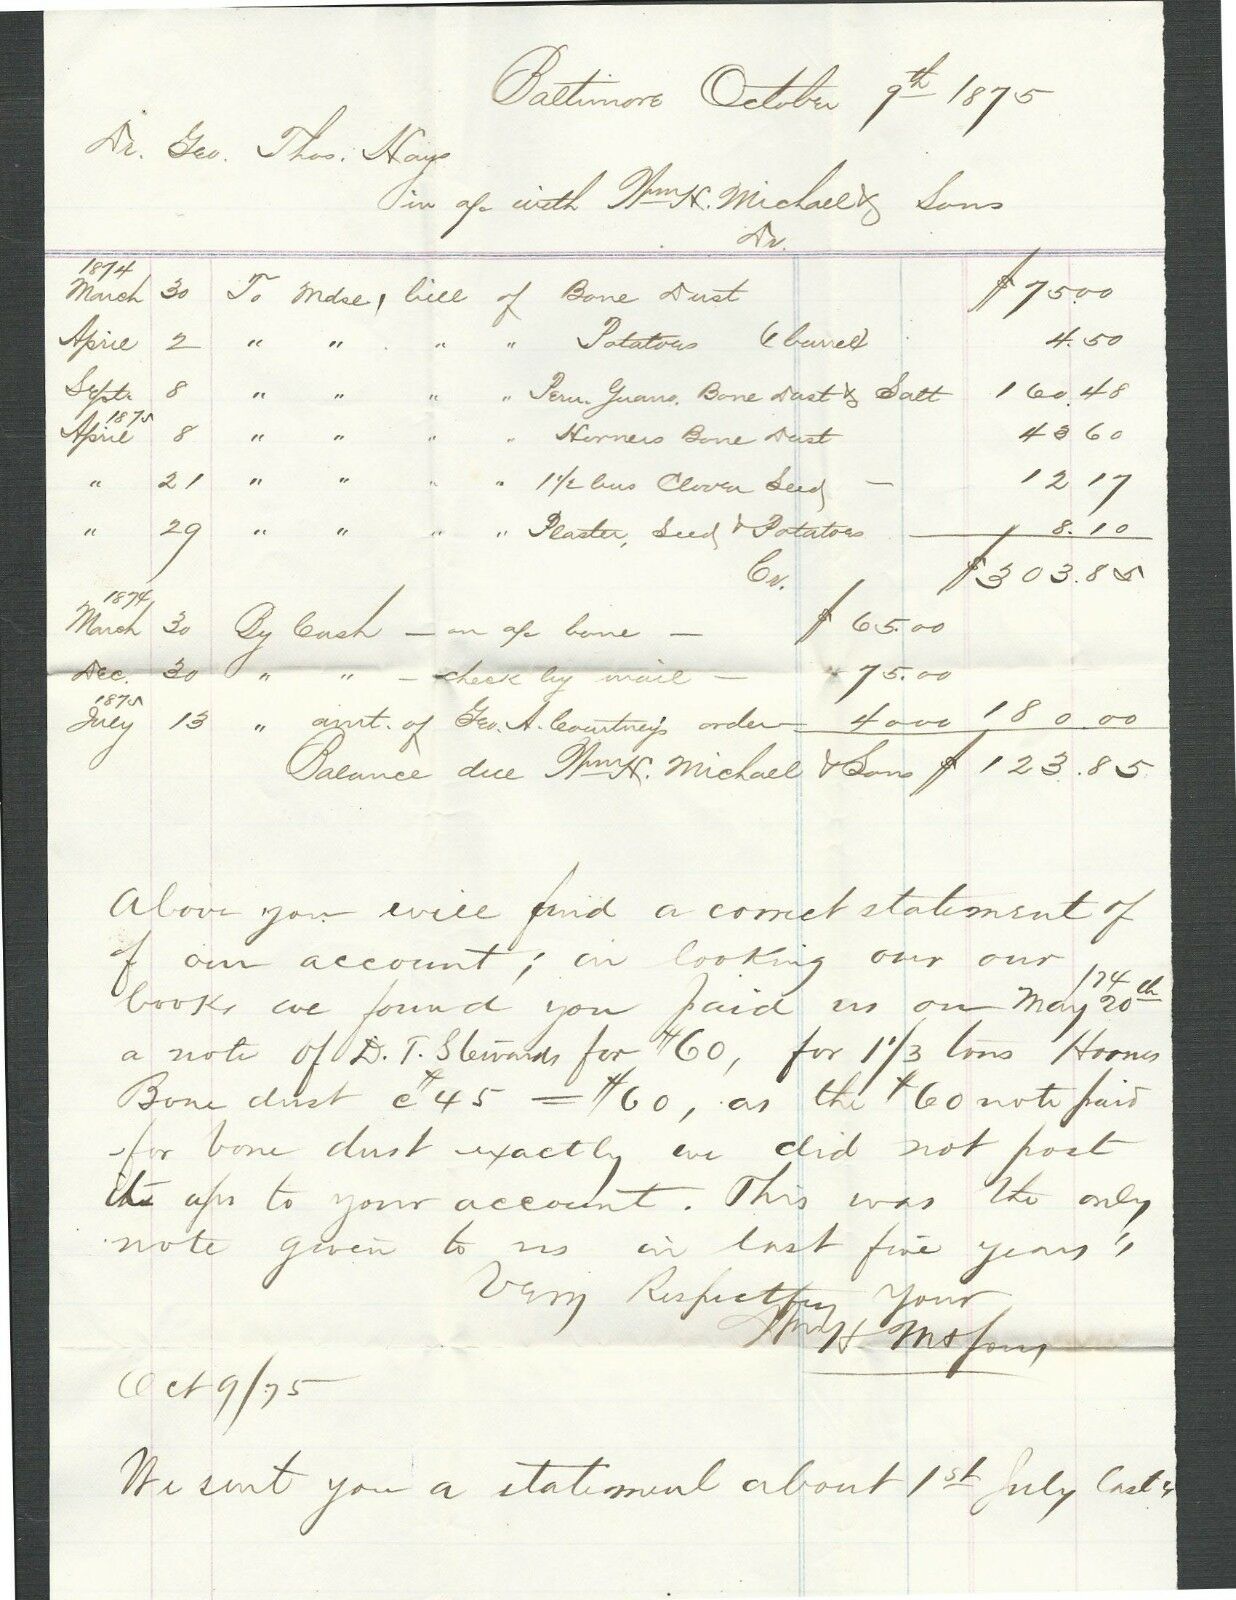 Baltimore October 9th 1875
Dr. Geo. Thos. Hays
in a/c with Wm H. Michael & Sons
Dr.
1874
March 30 To Mdse, bill of Bone Dust $75.00
April 2 " " " " Potatoes 6 barrels 4.50
Septr 8 " " " " Peru. Guano. Bone Dust & Salt 160.48
1875
April 8 " " " " Horners Bone Dust 43 60
" 21 " " " " 1 1/2 bus Clover Seed — 12 17
" 29 " " " " Plaster, Seed & Potatoes 8.10
Cr. $303.85
1874
March 30 By Cash — on a/c bone — $65.00
Dec. 30 " " — check by mail — 75.00
1875
July 13 " amt. of Geo. A. Courtney's order — 40 00 180.00
Balance due Wm H. Michael & Sons $123.85
Above you will find a correct statement of
of our account; in looking our our
books we found you paid us on May 20th /74
a note of D. T. Stewards for $60, for 1 1/3 tons Horners
Bone dust @ $45 = $60, as the $60 note paid
for bone dust exactly we did not post
it to your account. This was the only
note given to us in last five years
Very Respectfully Your
Wm H. M & Sons
Oct 9/75
We sent you a statement about 1st July last &